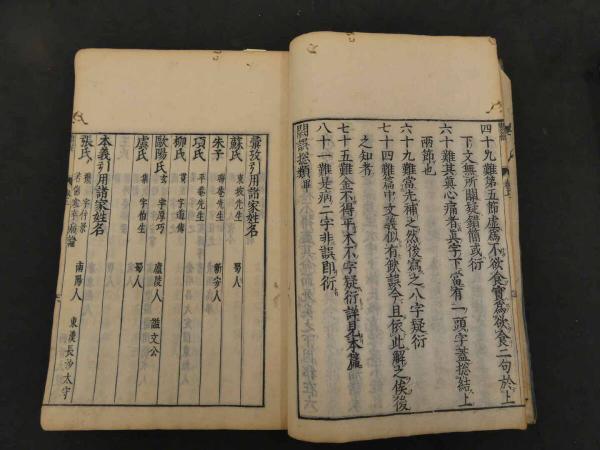 四十九難第五節虛爲不欲食實爲欲食二句於上
下文無所關疑錯簡或衍
六十難其真心痛者真字下當有一頭字蓋揔結上
兩節也
六十九難當先補之然後寫之八字疑衍
七十四難篇中文義似有缺誤今且依此解之俟後
之知者
七十五難金不得平木不字疑衍詳見本篇
八十一難是病二字非誤即衍
闕誤揔類畢
彙攷引用諸家姓名
蘇氏 東坡先生 蜀人
朱子 晦菴先生 新安人
項氏 平菴先生
柳氏 貫 字道傳
歐陽氏玄 字厚巧 廬陵人 謚文公
虞氏 集 字伯生 蜀人
本義引用諸家姓名
張氏 機 字仲景 南陽人 東漢長沙太守